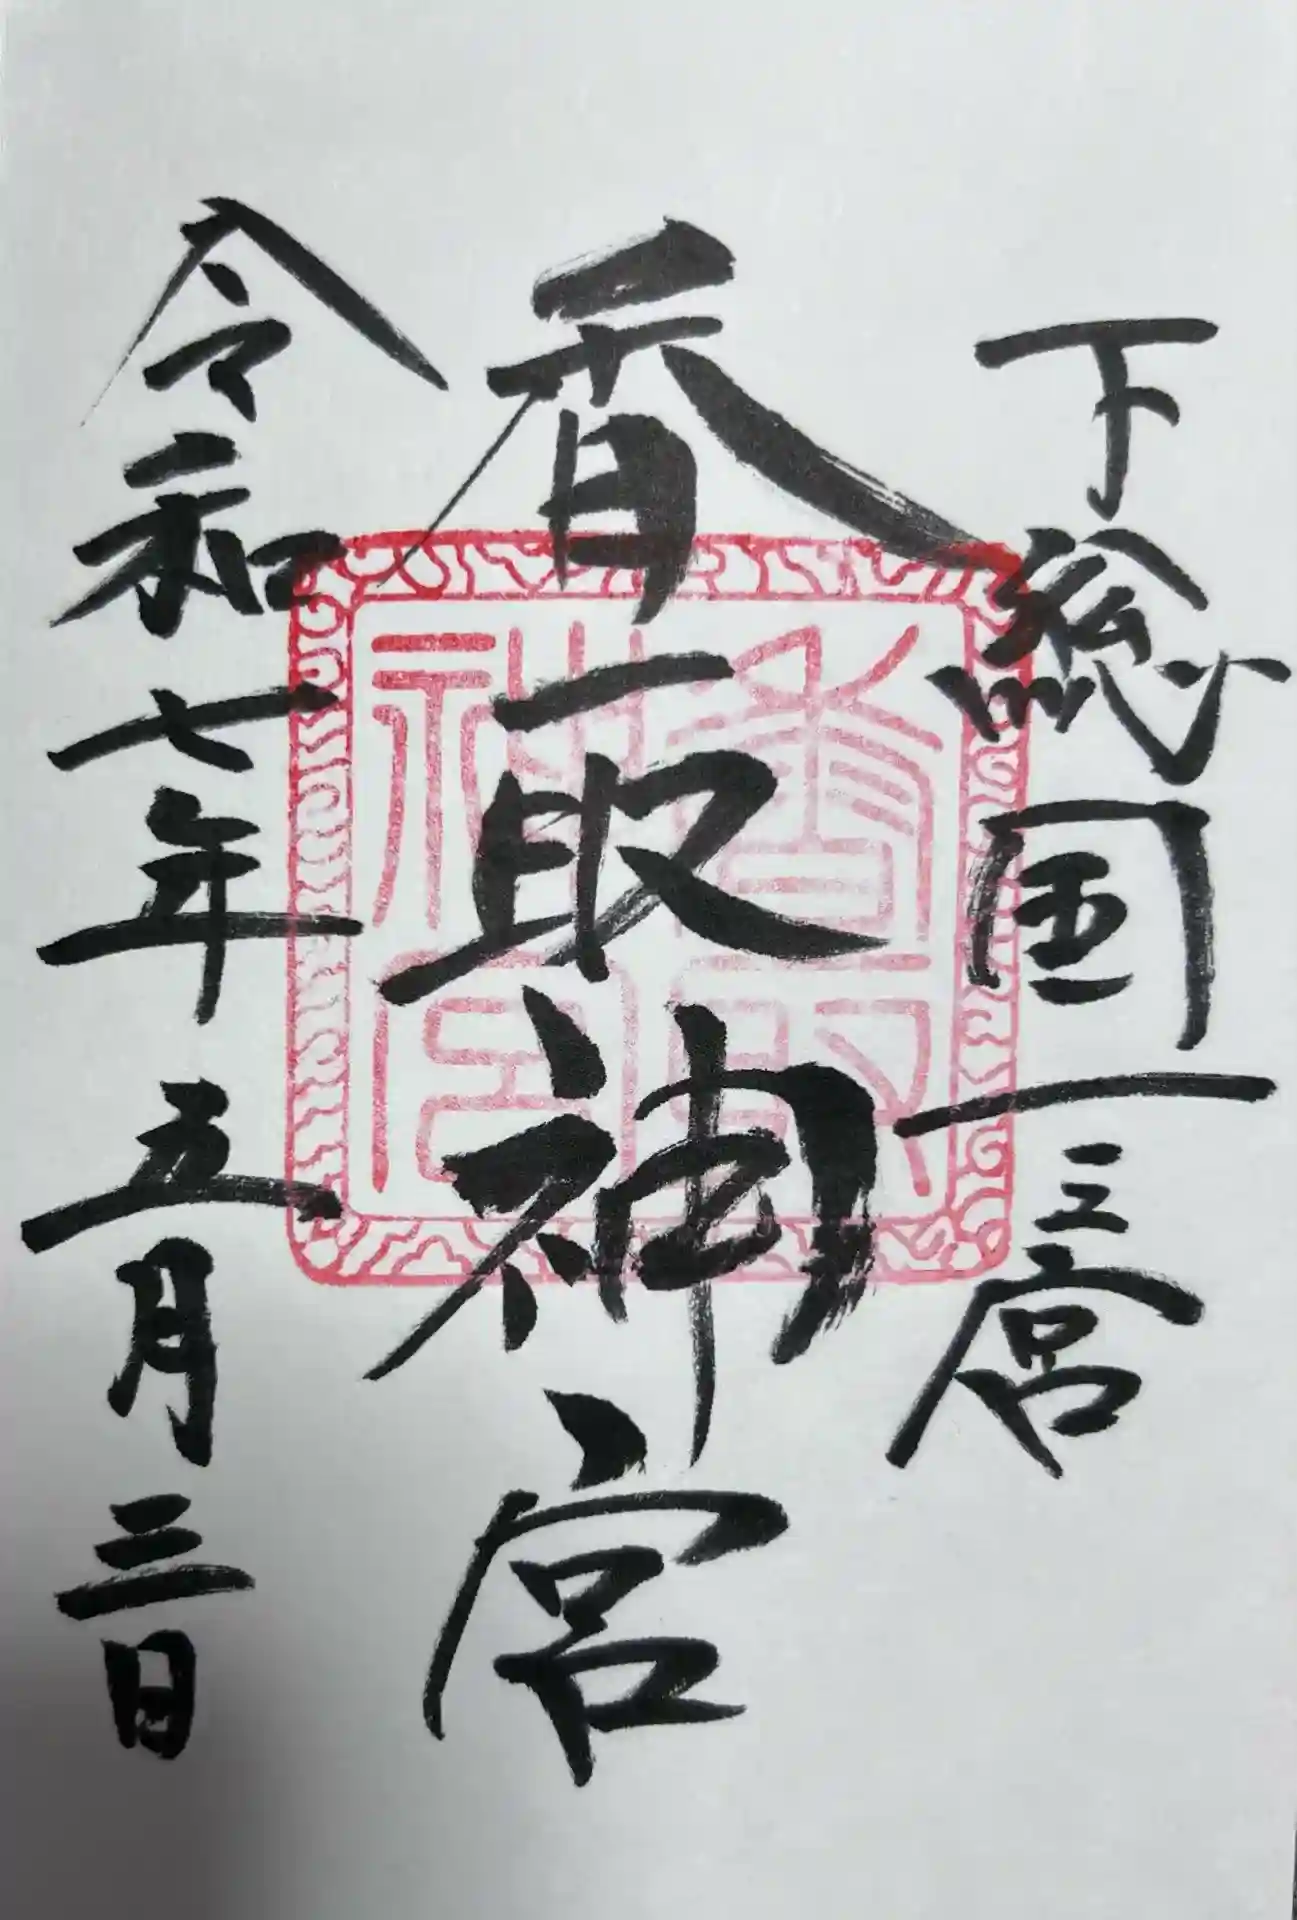 下総国一之宮
香取神宮
令和七年五月三日
香取神宮